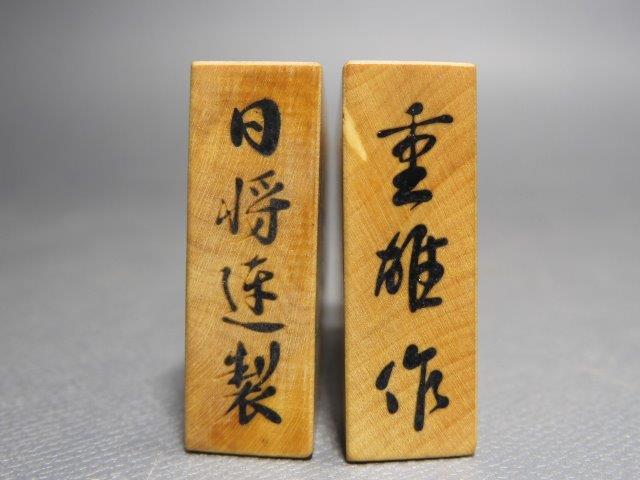 日将連製
重雄作